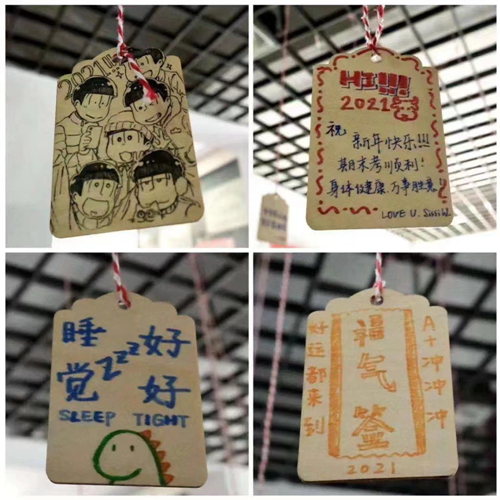 2021!!
HI!!!
2021
祝
新年快乐!!!
期末考顺利!
身体健康.万事胜意!
LOVE U.
睡觉
zzz
好好
SLEEP TIGHT
好运都来到
福气签
A+冲冲冲
2021